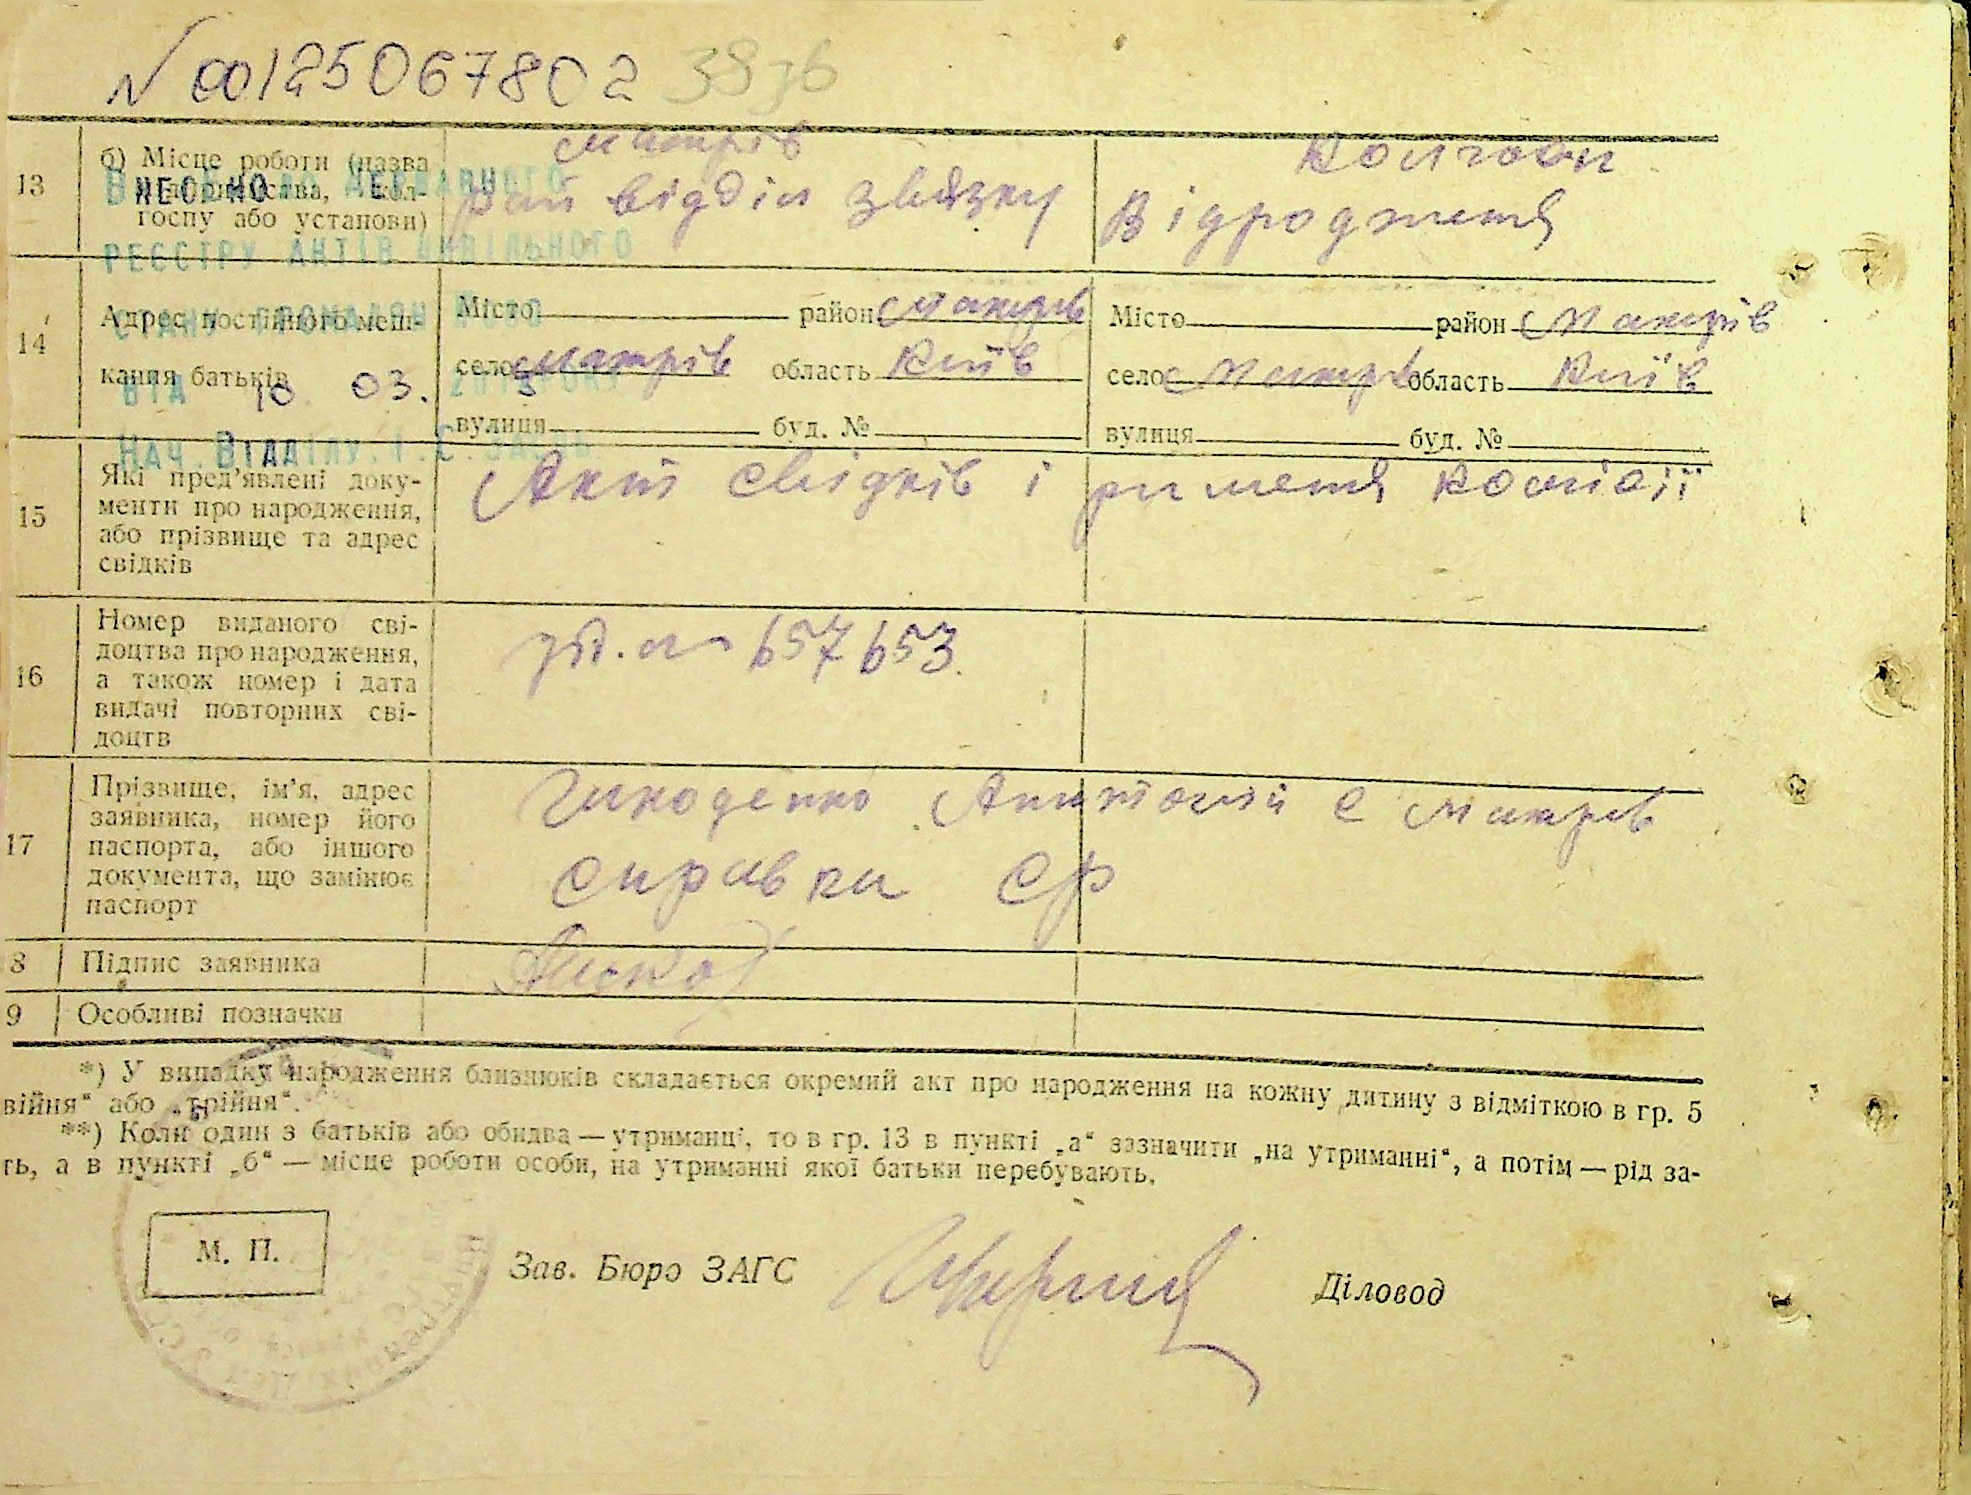 N 00125067802
13 б) Місце роботи (назва підприємства, колгоспу або установи)
Макарів Рай відділ звязку
Колгосп Відродження
ВНЕСЕНО ДО ДЕРЖАВНОГО
РЕЄСТРУ АКТІВ ЦИВІЛЬНОГО
СТАНУ ГРОМАДЯН
ВІД 03. РОКУ
НАЧ. ВІДДІЛУ. І.С.
14 Адрес постійного мешкання батьків
Місто район Макарів
село Макарів область Київ
вулиця буд. №
Місто район Макарів
село Макарів область Київ
вулиця буд. №
15 Які пред'явлені доку-
менти про народження,
або прізвище та адрес
свідків
Акт свідків і комісії
16 Номер виданого сві-
доцтва про народження,
а також номер і дата
видачі повторних сві-
доцтв
657653
17 Прізвище, ім'я, адрес
заявника, номер його
паспорта, або іншого
документа, що замінює
паспорт
с Макарів
справка СР
8 Підпис заявника
9 Особливі позначки
*) У випадку народження близнюків складається окремий акт про народження на кожну дитину з відміткою в гр. 5
війня" або „трійня".
**) Коли один з батьків або обидва — утриманці, то в гр. 13 в пункті „а" зазначити „на утриманні", а потім — рід за-
ть, а в пункті „б" — місце роботи особи, на утриманні якої батьки перебувають.
М. П.
Зав. Бюро ЗАГС
Діловод